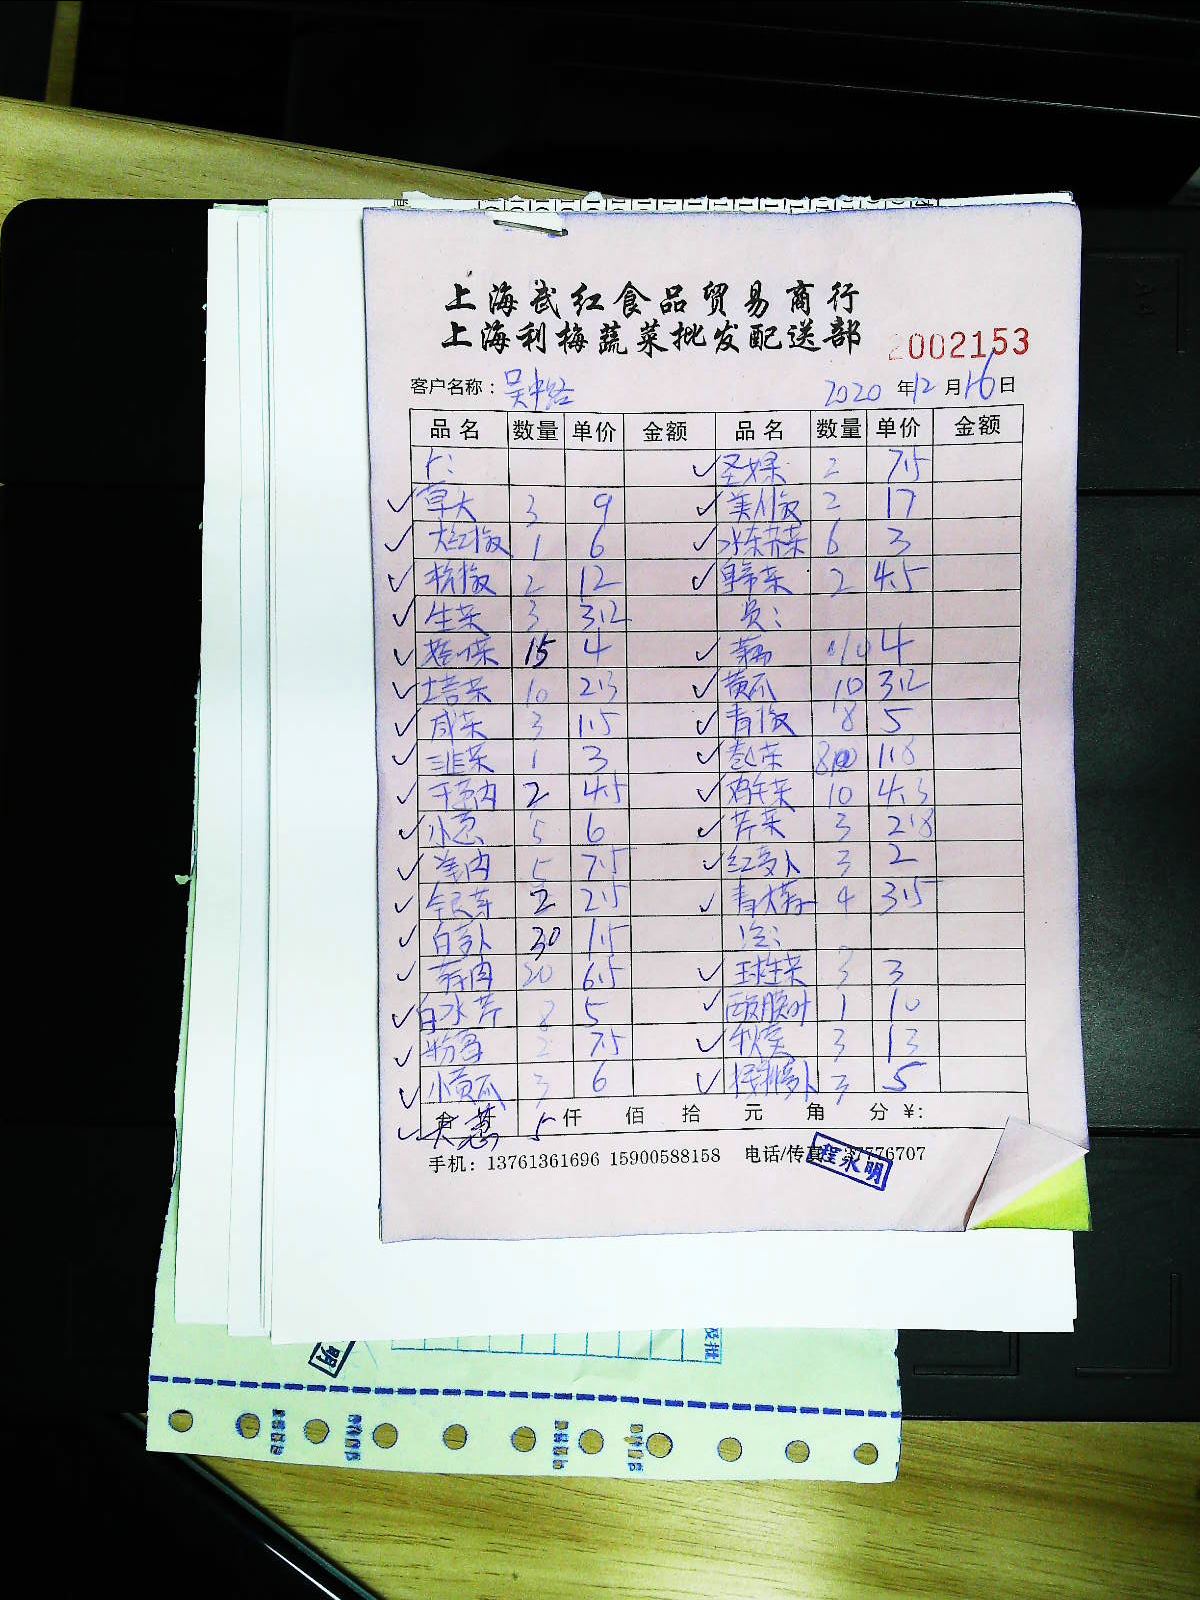 上海武红食品贸易商行
上海利梅蔬菜批发配送部
2002153
客户名称：吴中路 2020年12月16日
品名 数量 单价 金额 品名 数量 单价 金额
上： 圣女果 2 7.5
草大 3 9 美人椒 2 17
大红椒 1 6 水东芥菜 6 3
杭椒 2 12 2 4.5
生菜 3 3.2
15 4 10 4
10 2.3 黄瓜 10 3.2
咸菜 3 1.5 青椒 8 5
韭菜 1 3 卷心菜 1.8
2 4.5 鸡毛菜 10 4.3
小葱 5 6 芹菜 3 2.8
姜肉 5 7.5 红萝卜 3 2
2 2.5 4 3.5
白萝卜 30 1.5
蒜肉 20 6.5 球生菜 3 3
白水芹 5 1 10
7.5 秋葵 3 13
小黄瓜 3 6 3 5
大葱 5 仟 佰 拾 元 角 分 ¥:
手机：13761361696 15900588158 电话/传真
程永明